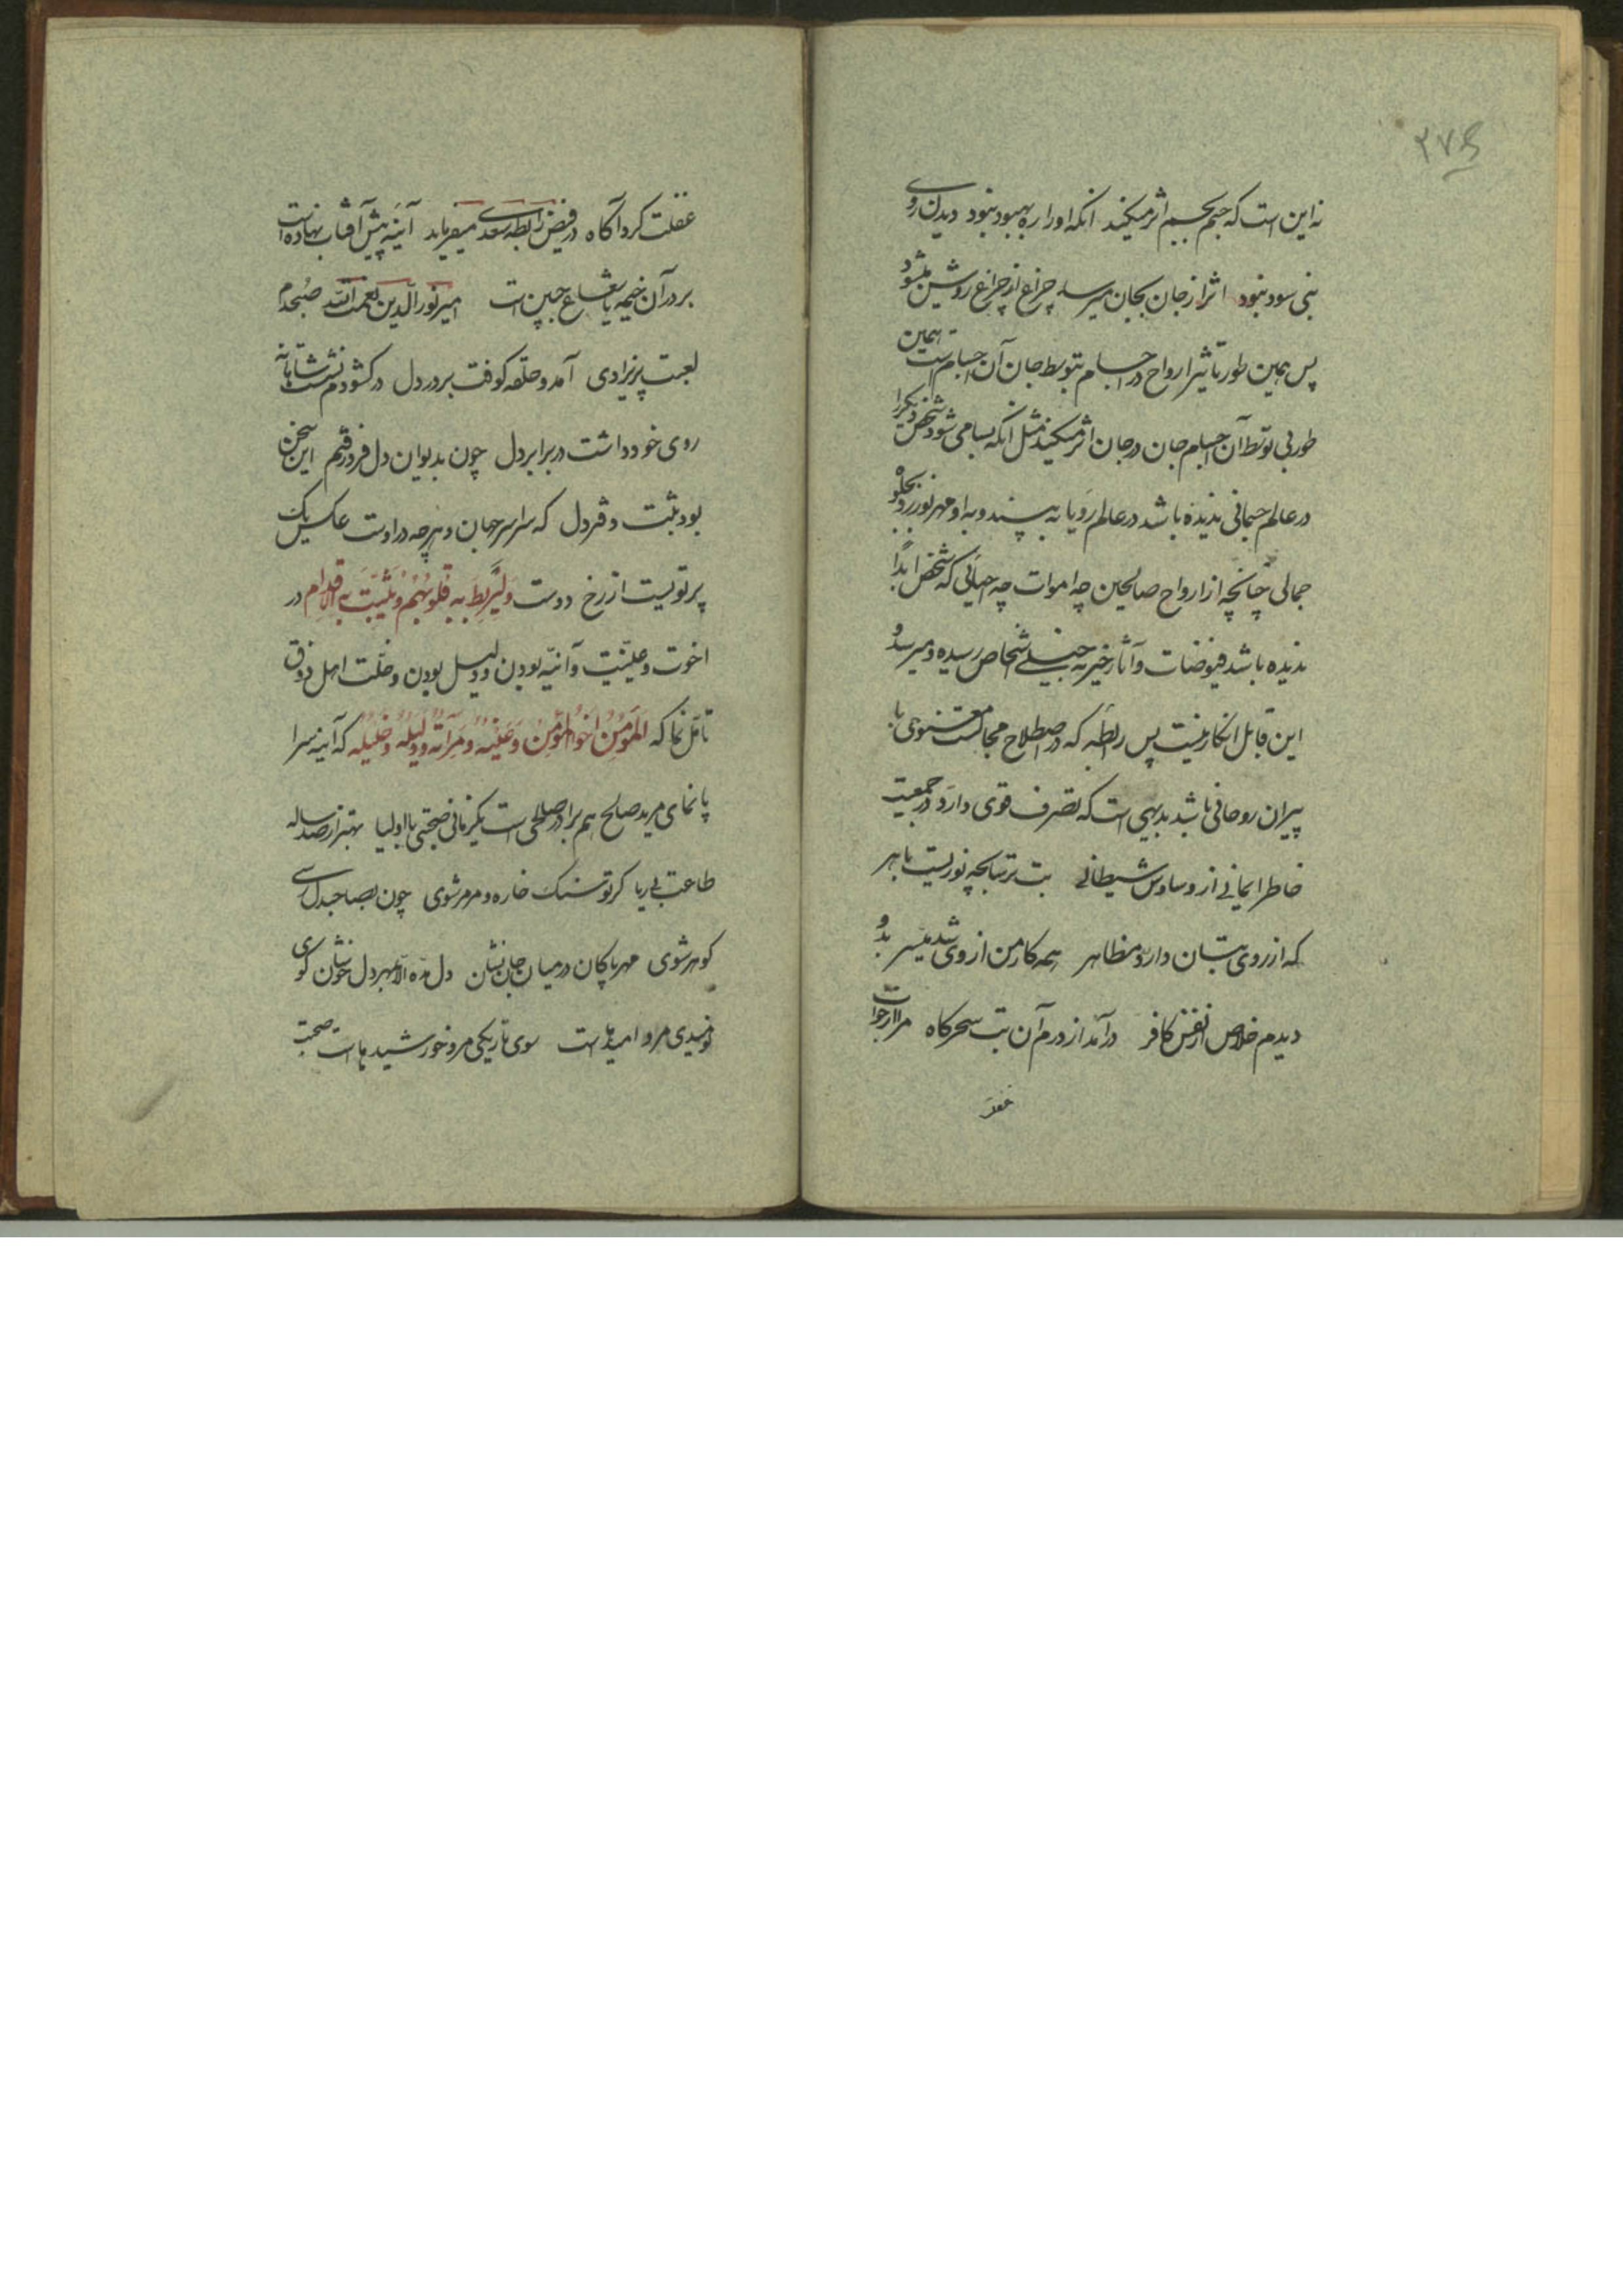 ۳۷۵
نه این است که جسم بجسم اثر میکند انکه او را ره بهبود نبود دیدن روی
نبی سود نبود اثر از جان بجان میرسد چراغ از چراغ روشن میشود
پس همین طور تاثیر ارواح در اجسام بتوسط جان آن اجسام است همین
طور بی توسط آن اجسام جان در جان اثر میکند مثل آنکه بسا می شود شخص دیگر را
در عالم جسمانی ندیده باشد در عالم رویا به بیند و به او مهر نورزد
جمالی چنانچه از ارواح صالحین چه اموات چه احیائی که شخص ابداً
ندیده باشد فیوضات و آثار خیریه بخیلی اشخاص رسیده و میرسد و
این قابل انکار نیست پس رابطه که در اصطلاح مجالست معنوی با
پیران روحانی باشد بدیهی است که تصرف قوی دارد در جمعیت
خاطر ایمانی از وساوس شیطانی بت ترسابچه نوریست باهر
که از روی بتان دارد مظاهر همه کار من از وی شد میسر بدو
دیدم خلاص از نفس کافر درآمد از درم آن بت سحرگاه مرا از خواب
غفلت
غفلت کرد آگاه در فیض رابطه سعدی میفرماید آئینه پیش آفتاب نهاده است
بر در آن خیمه یا شعاع جبین است امیر نورالدین نعمت الله صبحدم
لعبت پریزادی آمد و حلقه کوفت بر در دل در گشودم نشست
روی خود داشت در برابر دل چون بدیوان دل فرو رفتم این سخن
بود ثبت دفتر دل که سراسر جهان و هرچه در اوست عکس یک
پرتویست از رخ دوست وَلِیَربِطَ به قُلوبُهُم وَیُثَبِّتَ به الاَقدام در
اخوت و عینیت و آئینه بودن و دلیل بودن و خلت اهل ذوق
تأمل نما که المؤمِنُ اَخوالمؤمِن وَ عَینُه و مِرآتُه و دلیلُه و خلیلُه که آینه سرا
پا نمای مرید صالح هم برادر صالحی است یکزمانی صحبتی با اولیا بهتر از صد ساله
طاعت بی ریا گر تو سنگ خاره و مرمر شوی چون بصاحبدل رسی
گوهر شوی مهر پاکان در میان جان نشان دل مده الا بمهر دل خوشان کوی
نومیدی مرو امیدهاست سوی تاریکی مرو خورشیدهاست صحبت